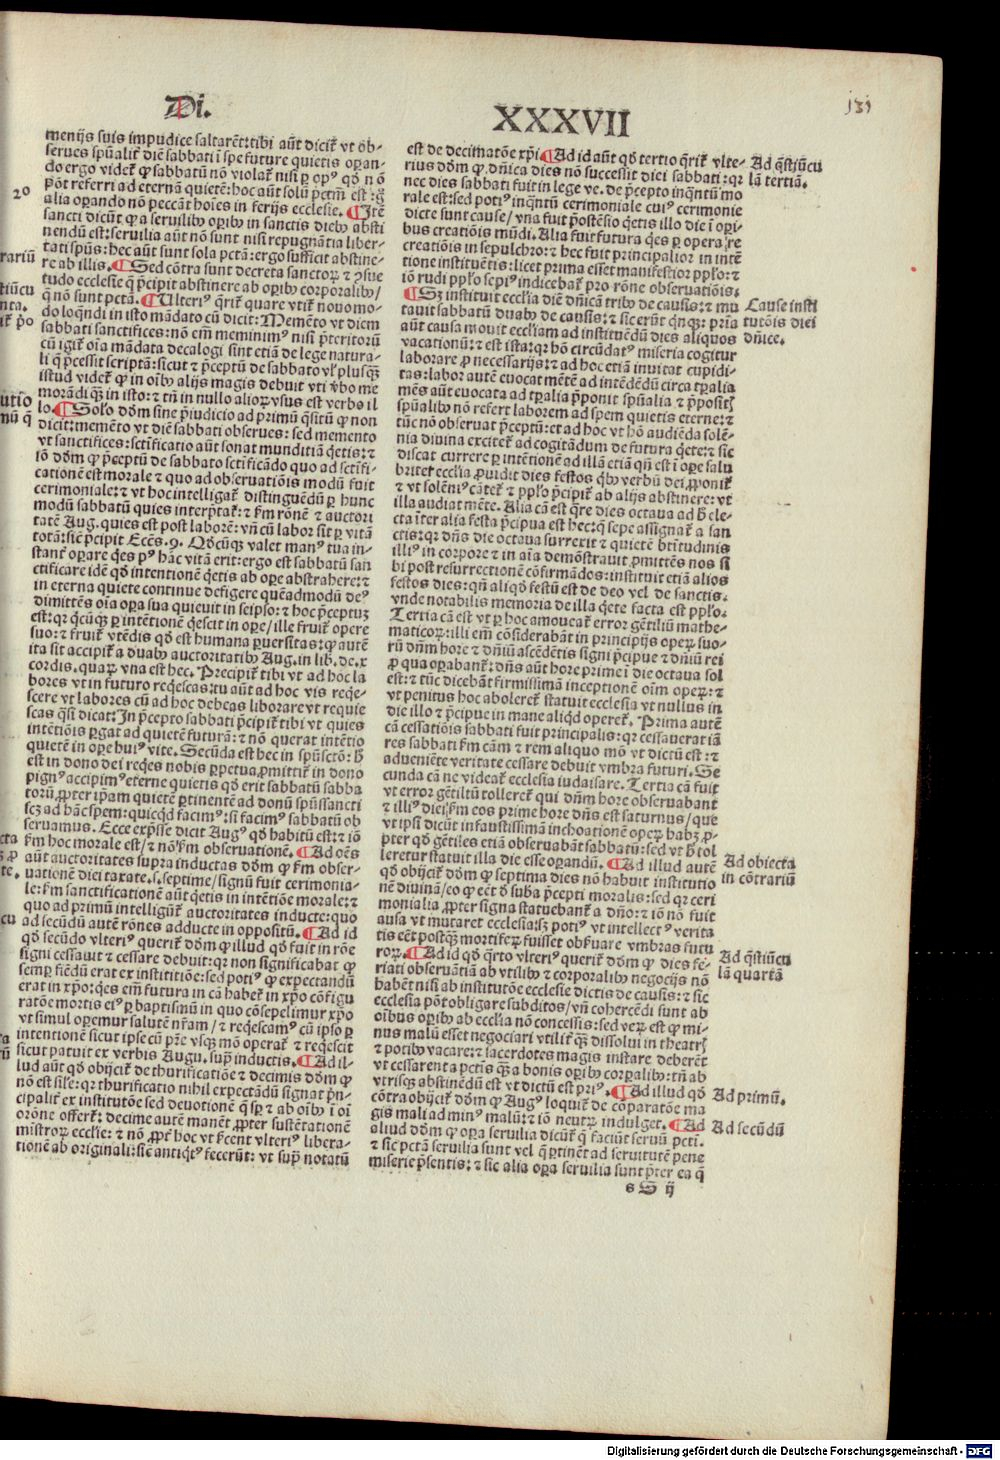 Di.
XXXVII
131
menijs suis impudice saltarēt: tibi aūt dicit̄ vt ob-
serues spūalit̄ diē sabbati ī spe future quietis oꝑan-
do ergo videt̄ ꝙ sabbatū nō violat̄ nisi ꝑ opꝰ qd̄ nō
pōt referri ad eternā quietē: hoc aūt solū pctm̄ est: ḡ
alia oꝑando nō peccāt hoīes in ferijs ecclesie. ¶ Itē
sancti dicūt ꝙ a seruilibꝰ oꝑibꝰ in sanctis diebꝰ absti
nendū est: seruilia aūt nō sunt nisi repugnātia liber-
tati spūs: hec aūt sunt sola pctā: ergo sufficit abstine-
re ab illis. ¶ Sed cōtra sunt decreta sanctoꝝ ⁊ ꝯsue
tudo ecclesie q̄ p̄cipit abstinere ab oꝑibꝰ corporalibꝰ/
q̄ nō sunt pctā. ¶ Ulteriꝰ q̄rit̄ quare vtit̄ nouo mo-
do loq̄ndi in isto mādato cū dicit: Memēto vt diem
sabbati sanctifices: nō em̄ meminimꝰ nisi p̄teritorū
cū igit̄ oīa mādata decalogi sint etiā de lege natura-
li q̄ p̄cessit scriptā: sicut ⁊ p̄ceptū de sabbato vl̄ plusꝙ̄
istud videt̄ ꝙ in oībꝰ alijs magis debuit vti v̄bo me
morādi ꝙ̄ in isto: ⁊ tn̄ in nullo alioꝝ vsus est verbis il
lo. ¶ Solo dōm sine p̄iudicio ad primū q̄situ ꝙ non
dicit: memēto vt diē sabbati obserues: sed memento
vt sanctifices: sctificatio aūt sonat munditiā q̄etis: ⁊
iō dōm ꝙ p̄ceptū de sabbato sctificādo quo ad sctifi-
cationē est morale ⁊ quo ad obseruatiōis modū fuit
cerimoniale: ⁊ vt hoc intelligat̄ distinguēdū ꝑ hunc
modū sabbatū quies interp̄tat̄: ⁊ fm̄ rōnē ⁊ auctori
tatē Aug. quies est post laborē: vn̄ cū labor sit ꝑ vitā
totā: sic̄ p̄cipit Ecces. 9. Qd̄cūqꝫ valet manꝰ tua in-
stant̄ oꝑare q̄es pꝰ hāc vitā erit: ergo est sabbatū san
ctificare idē qd̄ intentionē q̄etis ab oꝑe abstrahere: ⁊
in eterna quiete continue defigere quēadmodū deꝰ
dimittēs oīa oꝑa sua quieuit in seipso: ⁊ hoc p̄ceptuꝫ
est: qꝛ q̄cūqꝫ ꝑ intētionē q̄escit in oꝑe/ ille fruit̄ opere
suo: ⁊ fruit̄ vtēdis qd̄ est humana ꝑuersitas: ꝙ autē
ita sit accipit̄ a duabꝰ auctoritatibꝰ Aug. in lib. de. x
cordis. quaꝝ vna est hec. Precipit̄ tibi vt ad hoc la
bores vt in futuro reqēscas: tu aūt ad hoc vis reqē-
scere vt labores cū ad hoc debeas liborare vt requie
scas q̄si dicat: In p̄cepto sabbati p̄cipit̄ tibi vt quies
intētiōis ꝑgat ad quietē futurā: ⁊ nō querat intētio
quietē in oꝑe huiꝰ vite. Secūda est hec in spūsctō: h̄
est in dono dei reqēs nobis ꝑpetua ꝓmittit̄ in dono
pignꝰ accipimꝰ eterne quietis qd̄ erit sabbatū sabba
torū/ ꝓpter ip̄am quietē ꝑtinentē ad donū spūssancti
scꝫ ad hāc spem: quicqd̄ facimꝰ: si facimꝰ sabbatū ob
seruamus. Ecce exp̄sse dicit Augꝰ qd̄ habitū est: ⁊ iō
fm̄ hoc morale est/ ⁊ nō fm̄ obseruationē. ¶ Ad oēs
aūt auctoritates supra inductas dōm ꝙ fm̄ obser-
uationē diei taxate. s. septime/ signū fuit cerimonia-
le: fm̄ sanctificationē aūt q̄etis in intētiōe morale: ⁊
quo ad primū intelligūt̄ auctoritates inducte: quo
ad secūdū autē rōnes adducte in oppositū. ¶ Ad id
qd̄ secūdo vlteriꝰ querit̄ dōm ꝙ illud qd̄ fuit in rōe
signi cessauit ⁊ cessare debuit: qꝛ non significabat ꝙ
semꝑ fiēdū erat ex institiōe: sed potiꝰ ꝙ expectandū
erat in xp̄o: q̄es em̄ futura in cā habet̄ in xp̄o cōfigu
ratōe mortis eiꝰ ꝑ baptismū in quo cōsepelimur xp̄o
vt simul oꝑemur salutē nr̄am/ ⁊ reqēscamꝰ cū ipso ꝑ
intentionē sicut ipse cū pr̄e vsqꝫ mō operat̄ ⁊ reqēscit
sicut patuit ex verbis Augu. supra inductis. ¶ Ad il-
lud aūt qd̄ obijcit̄ de thurificatiōe ⁊ decimis dōm ꝙ
nō est sil̄e: qꝛ thurificatio nihil expectādū signat p̄n-
cipalit̄ ex institutōe sed deuotionē q̄ sꝑ ⁊ ab oībꝰ ī oī
orōne offert̄: decime autē manēt ꝓpter sustētationē
mīstroꝝ ecclie: ⁊ nō ꝓpt̄ hoc vt fecent vlteriꝰ libera-
tionē ab originali: sic̄ antiqꝰ fecerūt: vt supra notatū
est de decimatōe xp̄i. ¶ Ad id aūt qd̄ tertio q̄rit̄ vlte-
rius dōm ꝙ dn̄ica dies nō succescit diei sabbati: qꝛ
nec dies sabbati fuit in lege ve. de p̄cepto inq̄ntū mo
rale est: sed potiꝰ inq̄ntū cerimoniale cuiꝰ cerimonie
dicte sunt cause/ vna fuit p̄ostēsio q̄etis illo die ī oꝑi
bus creatiōis mūdi. Alia fuit futura q̄es ꝑ opera re
creatiōis in sepulchro: ⁊ hec fuit principalior in intē
tione instituētis: licet prima esset manifestior pp̄lo: ⁊
iō rudi pp̄lo sepiꝰ indicebat̄ pro rōne obseruatiōis.
¶ Sꝫ instituit ecclīa diē dn̄icā tribꝰ de causis: ⁊ mu
tauit sabbatū duabꝰ de causis: ⁊ sic erūt q̄nqꝫ: prīa
aūt causa mouit ecclīam ad instituēdū dies aliquos
vacationū: ⁊ est ista: qꝛ hō circūdatꝰ miseria cogitur
laborare ꝓ necessarijs: ⁊ ad hoc etiā inuitat cupidi-
tas: labor autē euocat mētē ad intēdēdū circa tꝑalia
mēs aūt euocata ad tꝑalia p̄ponit spūalia ⁊ p̄positꝫ
spūalibꝰ nō refert laborem ad spem quietis eterne: ⁊
tūc nō obseruat p̄ceptū: et ad hoc vt hō audiēda solē-
nia diuina excitet̄ ad cogitādum de futura q̄ete: ⁊ sic
discat currere ꝑ intētionē ad illā etiā qn̄ est ī oꝑe salu
britet̄ ecclīa ꝓuidit dies festos q̄bꝰ verbū dei ꝓponit̄
⁊ vt solēniꝰ cātet̄ ⁊ pp̄lo p̄cipit̄ ab alijs abstinere: vt
illa audiat mēte. Alia cā est q̄re dies octaua ad h̄ ele-
cta īter alia festa p̄cipua est hec: q̄ sepe assignat̄ a san
ctis: qꝛ dn̄s die octaua surrexit ⁊ quietē btītudinis
illiꝰ in corpore ⁊ in aīa demōstrauit ꝓmittēs nos si
bi post resurrectionē cōfirmādos: instituit etiā alios
festos dies: qn̄ aliqd̄ festū est de deo vel de sanctis.
vnde notabilis memoria de illa q̄ete facta est pp̄lo.
Tertia cā est vt ꝑ hoc amoueat̄ error gētiliū mathe-
maticoꝝ: illi em̄ cōsiderabāt in principijs operū suo-
rū dn̄m hore ⁊ dn̄iū ascēdētis signi p̄cipue ⁊ dn̄iū rei
ꝓ qua oꝑabant̄: dn̄s aūt hore prime ī die octaua sol
est: ⁊ tūc dicebāt firmissimā inceptionē oīm operū: ⁊
vt penitus hoc aboleret̄ statuit ecclesia vt nullus in
die illo ⁊ p̄cipue in mane aliqd̄ operet̄. Prima autē
cā cessatiōis sabbati fuit principalis: qꝛ cessauerat iā
res sabbati fm̄ cām ⁊ rem aliquo mō vt dictū est: ⁊
adueniēte veritate cessare debuit vmbra futuri. Se
cunda cā ne videat̄ ecclesia iudaisare. Tertia cā fuit
vt error gētiliū tolleret̄ qui dn̄m hore obseruabant
⁊ illiꝰ diei: fm̄ eos prime hore dn̄s est saturnus/ que
vt ipsi dicūt infaustissimā inchoationē operū habꝫ ꝓ-
pter qd̄ gētiles etiā obseruabāt sabbatū: sed vt h̄ tol
leretur statuit illa die esse oꝑandū. ¶ Ad illud autē
qd̄ obijcit̄ dōm ꝙ septima dies nō habuit institutio
nē diuinā/ eo ꝙ eēt qd̄ suba p̄cepti moralis: sed qꝛ ceri
monialia ꝓpter signa statuebant̄ a dn̄o: ⁊ iō nō fuit
ausa vt mutaret ecclesia: sꝫ potiꝰ vt intellectꝰ verita
tis eēt postꝙ̄ mortiferū fuisset obseruare vmbras futu
roꝝ. ¶ Ad id qd̄ q̄rto vlteriꝰ querit̄ dōm ꝙ dies fe-
riati obseruātiā ab vtilibꝰ ⁊ corporalibꝰ negocijs nō
habēt nisi ab institutōe ecclesie dictis de causis: ⁊ sic
ecclesia pōt obligare subditos/ vn̄ cohercēdi sunt ab
oībus oꝑibꝰ ab ecclīa nō concessis: sed verū est ꝙ mi-
nus malū esset negociari vtilit̄ ꝙ̄ dissolui in theatrꝫ
⁊ potibꝰ vacare: ⁊ sacerdotes magis instare deberēt
vt cessarent a pctīs ꝙ̄ a bonis oꝑibꝰ corꝑalibꝰ: tn̄ ab
vtrisqꝫ abstinēdū est vt dictū est priꝰ. ¶ Ad illud qd̄
cōtra obijcit̄ dōm ꝙ Augꝰ loquit̄ de cōparatōe ma
gis mali ad minꝰ malū: ⁊ iō neutrꝝ indulget. ¶ Ad
aliud dōm ꝙ oꝑa seruilia dicūt̄ q̄ faciūt seruū pctī:
⁊ sic pctā seruilia sunt vel q̄ ꝑtinēt ad seruitutē pene
miserie p̄sentis: ⁊ sic alia oꝑa seruilia sunt p̄ter ea q̄
s S ij
Ad q̄stiūcu
lā tertiā.
Cause insti
tutōis diei
dn̄ice.
Ad obiecta
in cōtrariū
Ad q̄stiūcu
lā quartā
Ad primū.
Ad secūdū
20
Digitalisierung gefördert durch die Deutsche Forschungsgemeinschaft - DFG